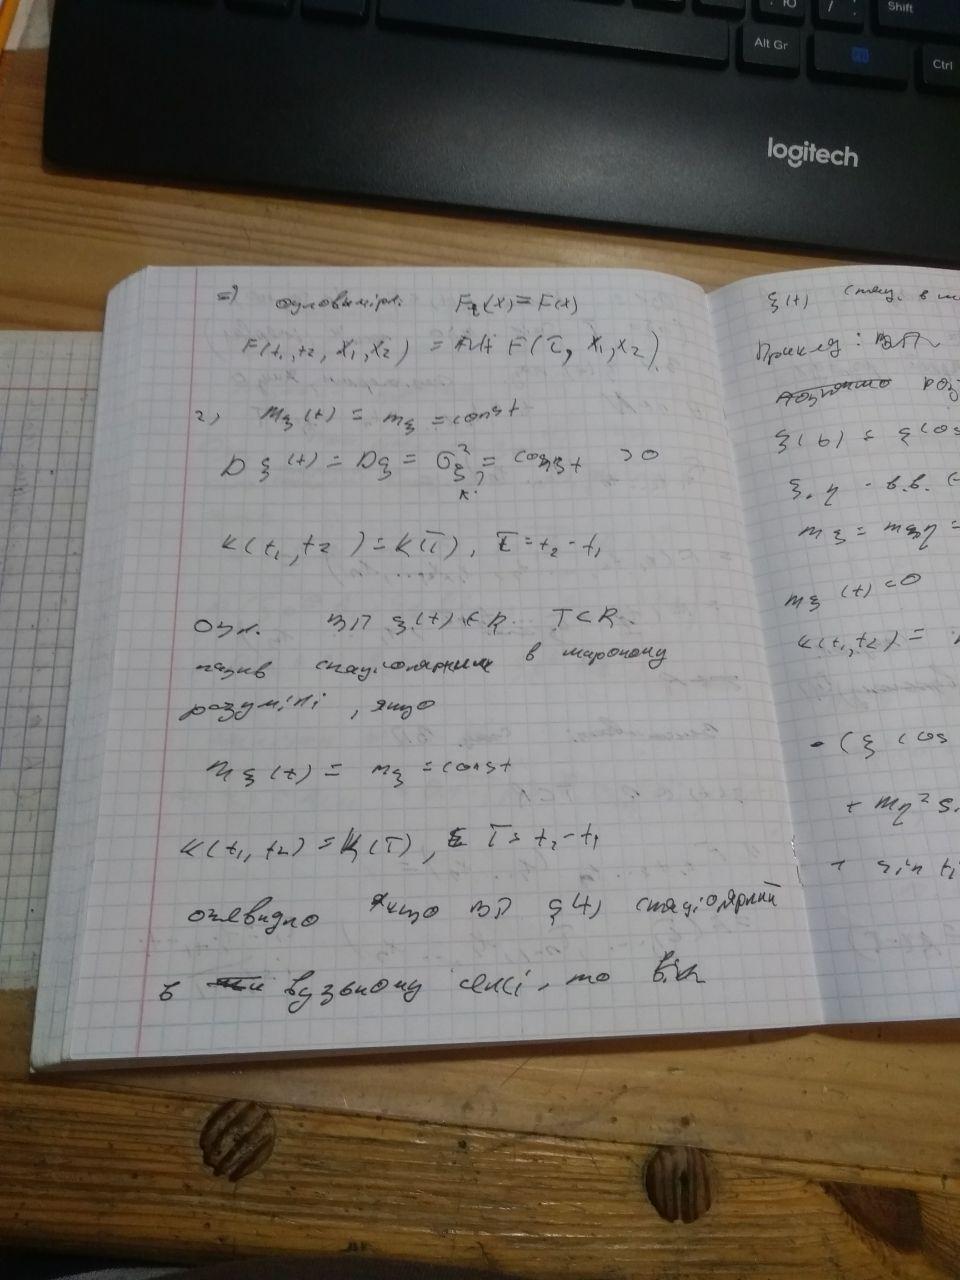 Alt Gr
Shift
Ctrl
logitech
=) одновимірн. F₁(x) = F(x)
F(t₁, t₂, x₁, x₂) = F(τ, x₁, x₂)
2) m ξ(t) = m ξ = const
D ξ(t) = D ξ = σ²ξ = const > 0
K(t₁, t₂) = K(τ), τ = t₂ - t₁
Озн. ВП ξ(t) ∈ R. T ⊂ R.
назив стаціонарним в широкому
розумінні, якщо
m ξ(t) = m ξ = const
K(t₁, t₂) = K(τ), τ = t₂ - t₁
очевидно якщо ВП ξ(t) стаціонярний
в вузькому сенсі, то він
ξ(t) стац. в
Приклад: ВП
ξ(t) = ξ cos
ξ, η - в.в.
m ξ = m η =
m ξ(t) = 0
K(t₁, t₂) =
• (ξ cos
+ m η² s
+ sin t₁